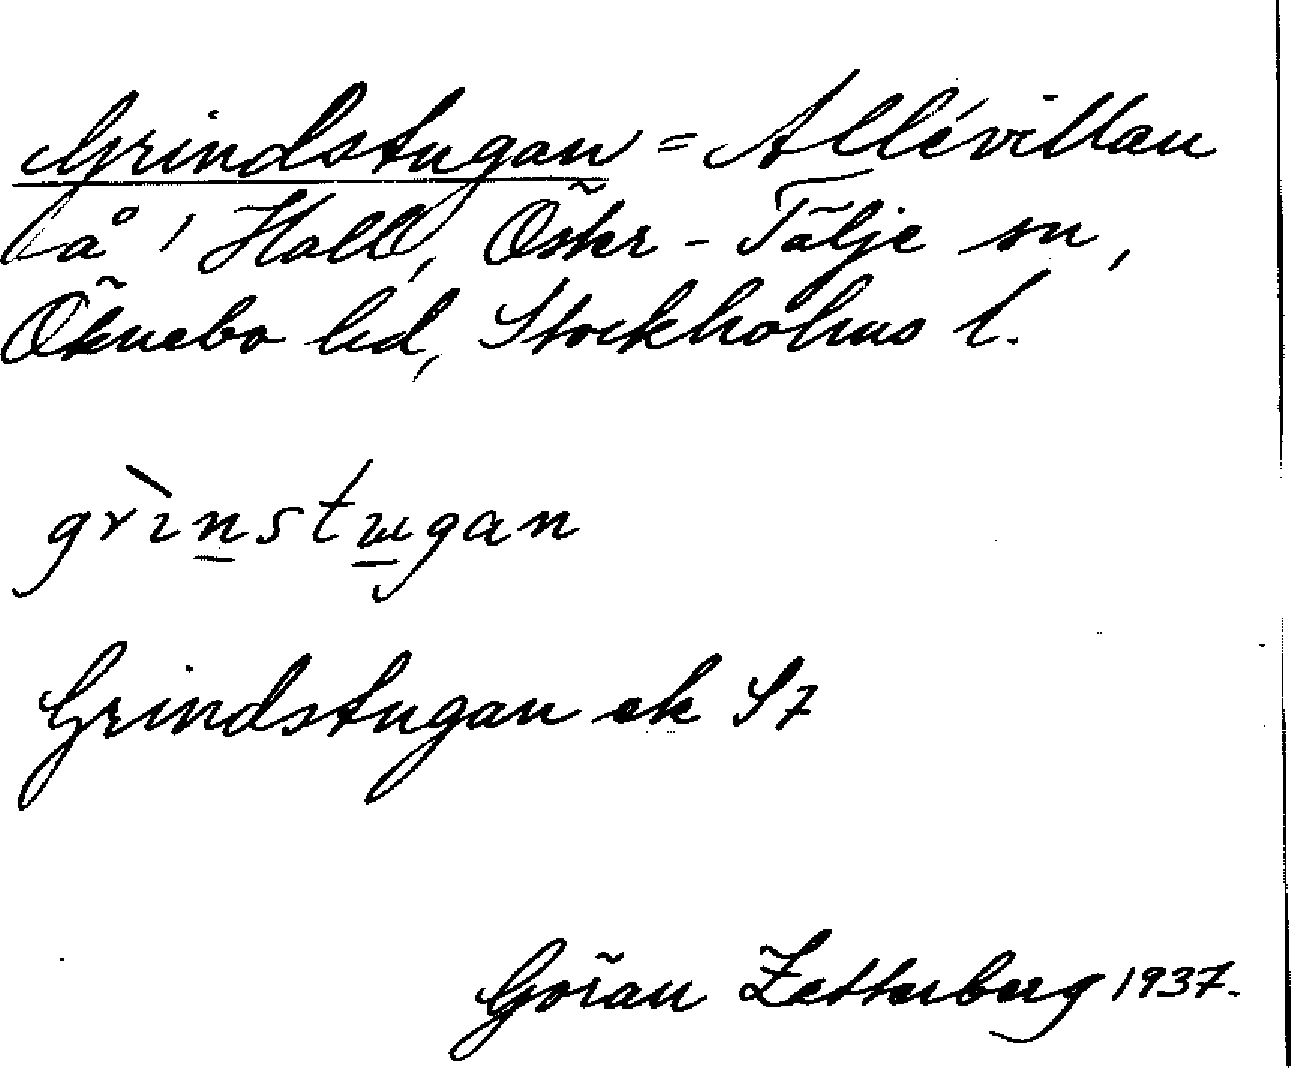 Grindstugan = Allévillan
på Hall, Öster-Tälje sn,
Öknebo hd, Stockholms l.
grìnstugan
Grindstugan ek 57
Göran Zetterberg 1937.